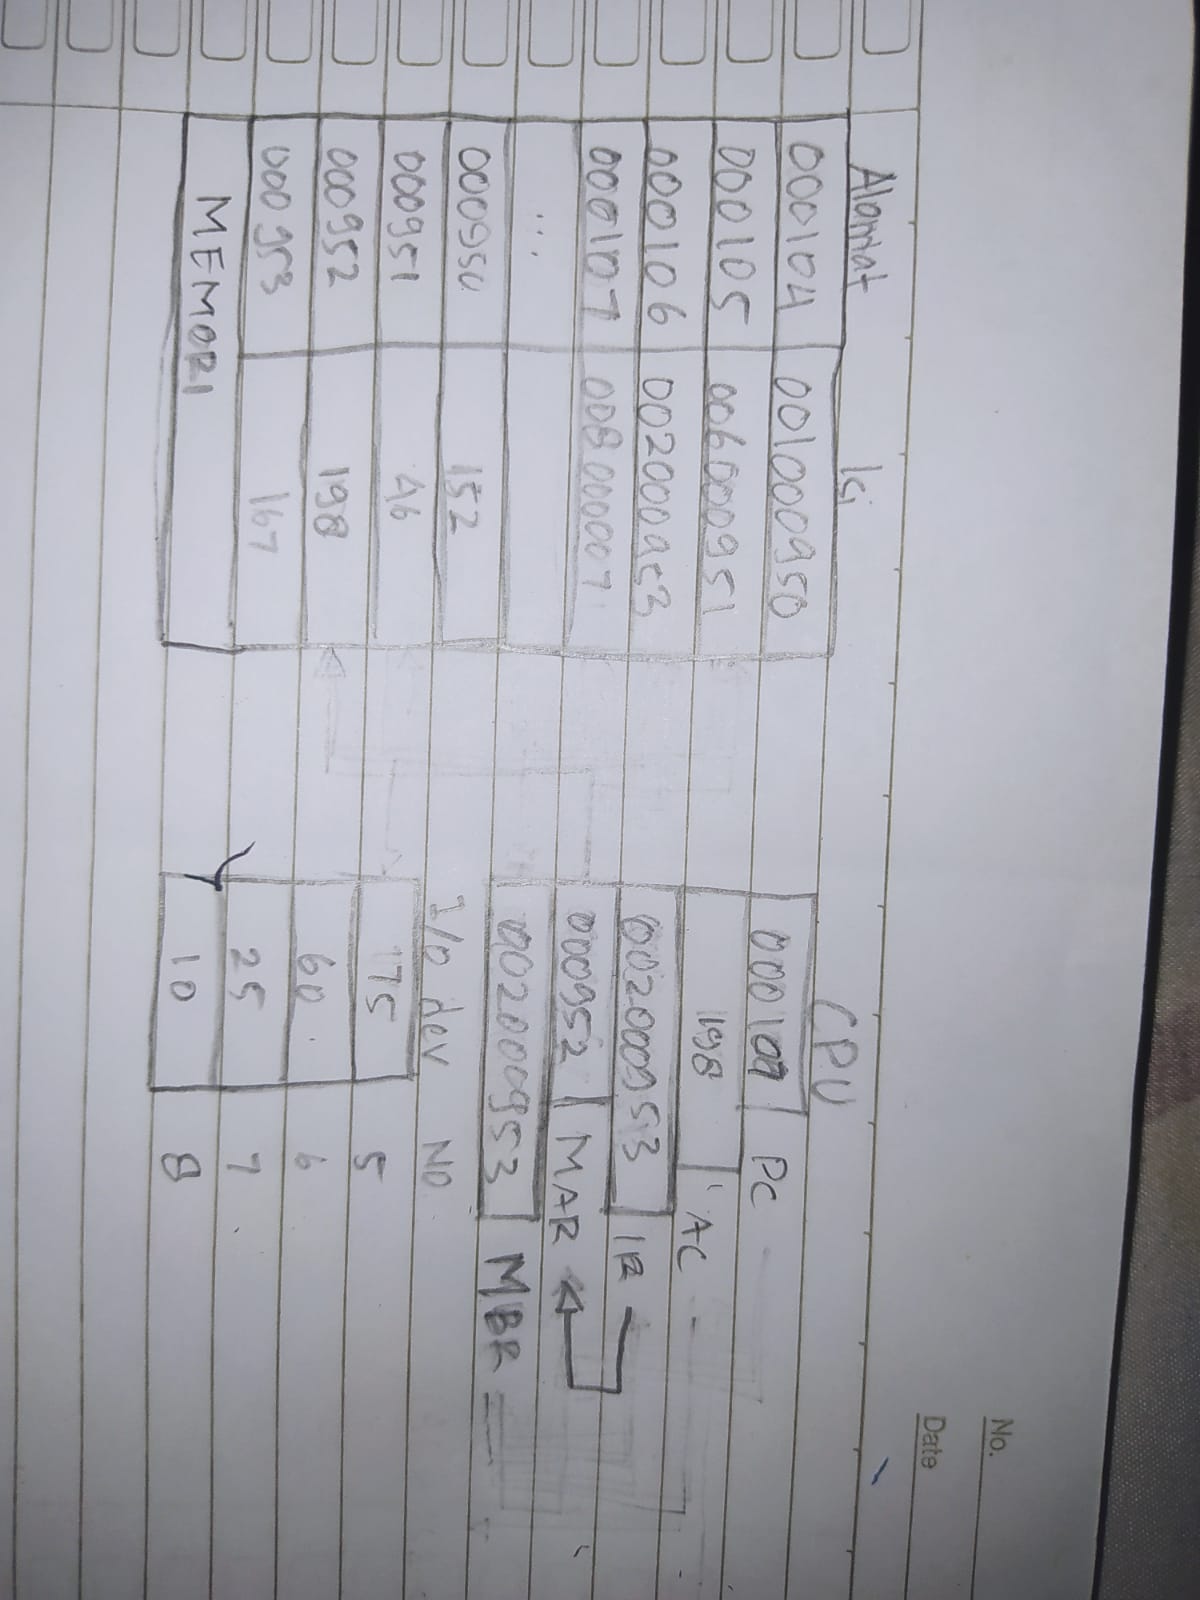 No.
Date
Alamat Isi
000104 001000950
000105 006000951
000106 002000953
000107 008000007
...
000950 152
000951 46
000952 198
000953 167
MEMORI
CPU
PC
198 AC
002000953 IR
000952 MAR
002000953 MBR
I/O dev NO
175 5
60 6
25 7
10 8